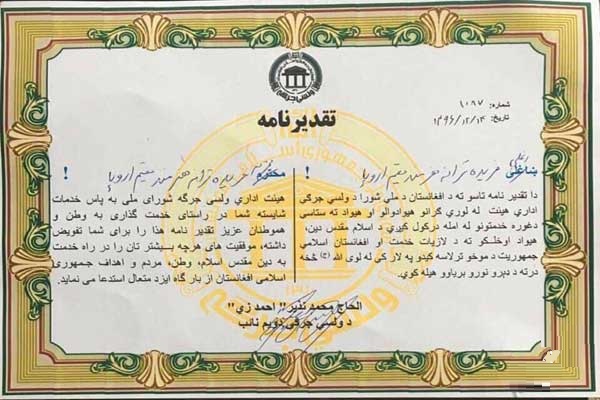 شماره: ۱۰۹۷
تاریخ: ۱۳۹۶/۱۲/۱۴
تقدیر نامه
ښاغلی فریده ترانه هنرمند مقیم اروپا !
دا تقدیر نامه تاسو ته د افغانستان د ملي شورا د ولسي جرگې
اداري هیئت له لوري گرانو هیوادوالو او هیواد ته ستاسې
دغوره خدمتونو له امله درکول کیږي د اسلام مقدس دین،
هیواد اوخلکو ته د لازیات خدمت او افغانستان اسلامي
جمهوریت د موخو ترلاسه کیدو په لار کې له لوی الله (ج) څخه
درته د ډېرو نورو بریاوو هیله کوي.
محترم فریده ترانه هنرمند مقیم اروپا !
هیئت اداري ولسي جرگه شورای ملی به پاس خدمات
شایسته شما در راستای خدمت گذاری به وطن و
هموطنان عزیز تقدیر نامه هذا را برای شما تفویض
داشته، موفقیت های هرچه بیشتر تان را در راه خدمت
به دین مقدس اسلام، وطن، مردم و اهداف جمهوری
اسلامی افغانستان از بار گاه ایزد متعال استدعا می نماید.
الحاج محمد نذیر" احمد زي"
د ولسي جرگې دویم نائب